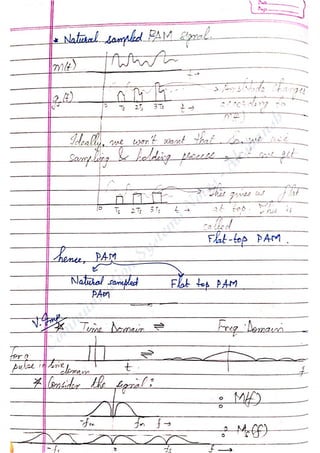 * Natural sampled PAM signal.
m(t)
t →
0 Ts 2Ts 3Ts t →
Amplitude changes
according to
m(t)
Ideally, we won't want that. So we use
sampling & holding process & we get
0 Ts 2Ts 3Ts t →
This gives us flat
at top. This is
called
Flat-top PAM.
hence, PAM
Natural sampled
PAM
Flat top PAM
V. Imp
* Time Domain ⇌ Freq. Domain
for a
pulse in time
domain
t
⇌
f
* Consider the signal:
: M(f)
-fm fm f →
: Ms(f)
-fs 0 fs f →